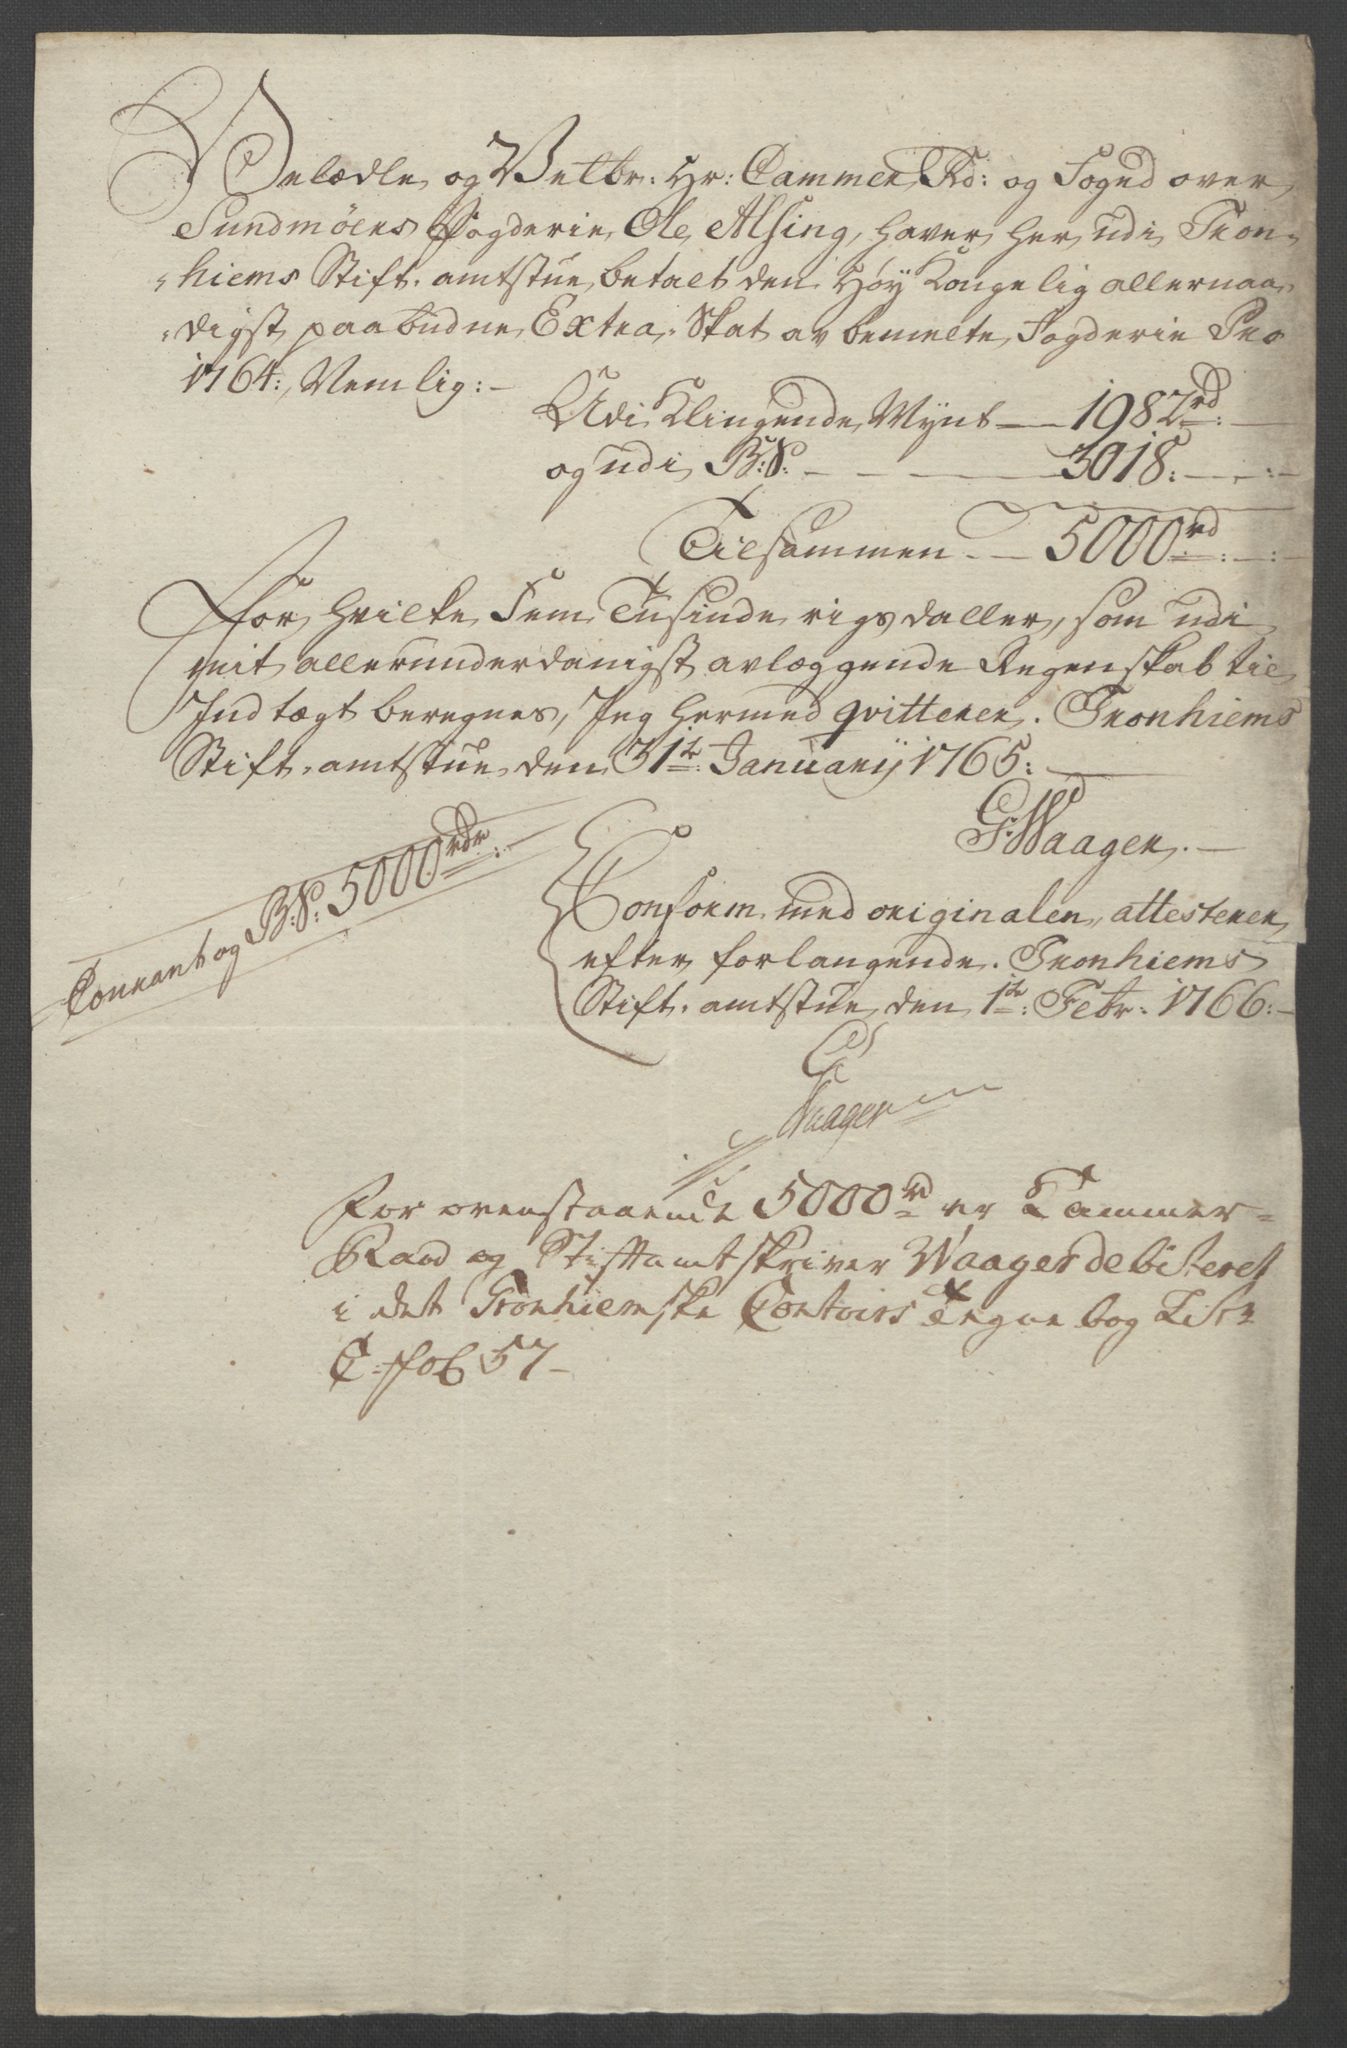 Velædle og Velbr: Hr: Cammer Rd: og Foged over
Sundmöers Fogderie, Ole Alsing, haver her udi Tron-
hiems Stift. amtstue betalt den Høy Kongelig allernaa-
digst paabudne Extra. Skat av bemelte Fogderie Pro
1764:, Nemlig:-
Udi Klingende Mynt — 1982 rd: —
og udi B:S: — 3018: —
Tilsammen — 5000 rd: —
For hvilke Fem Tusinde rigsdaller, som udi
mit allerunderdanigst avlæggende Regenskab til
Indtægt beregnes, Jeg hermed qvitterer. Tronhiems
Stift. amtstue den 31te: Januarij 1765: —
G: Waager. —
Courant og B:S: 5000 rdr:
Conform med originalen, attesterer
efter forlangende. Tronhiems
Stift. amtstue den 1te: Febr: 1766: -
G Waager
For ovenstaaende 5000 rd er Cammer-
Raad og Stiftamtskriver Waager debiteret
i det Tronhiemske Contoirs Tegnebog Litr
C. fol 57 -